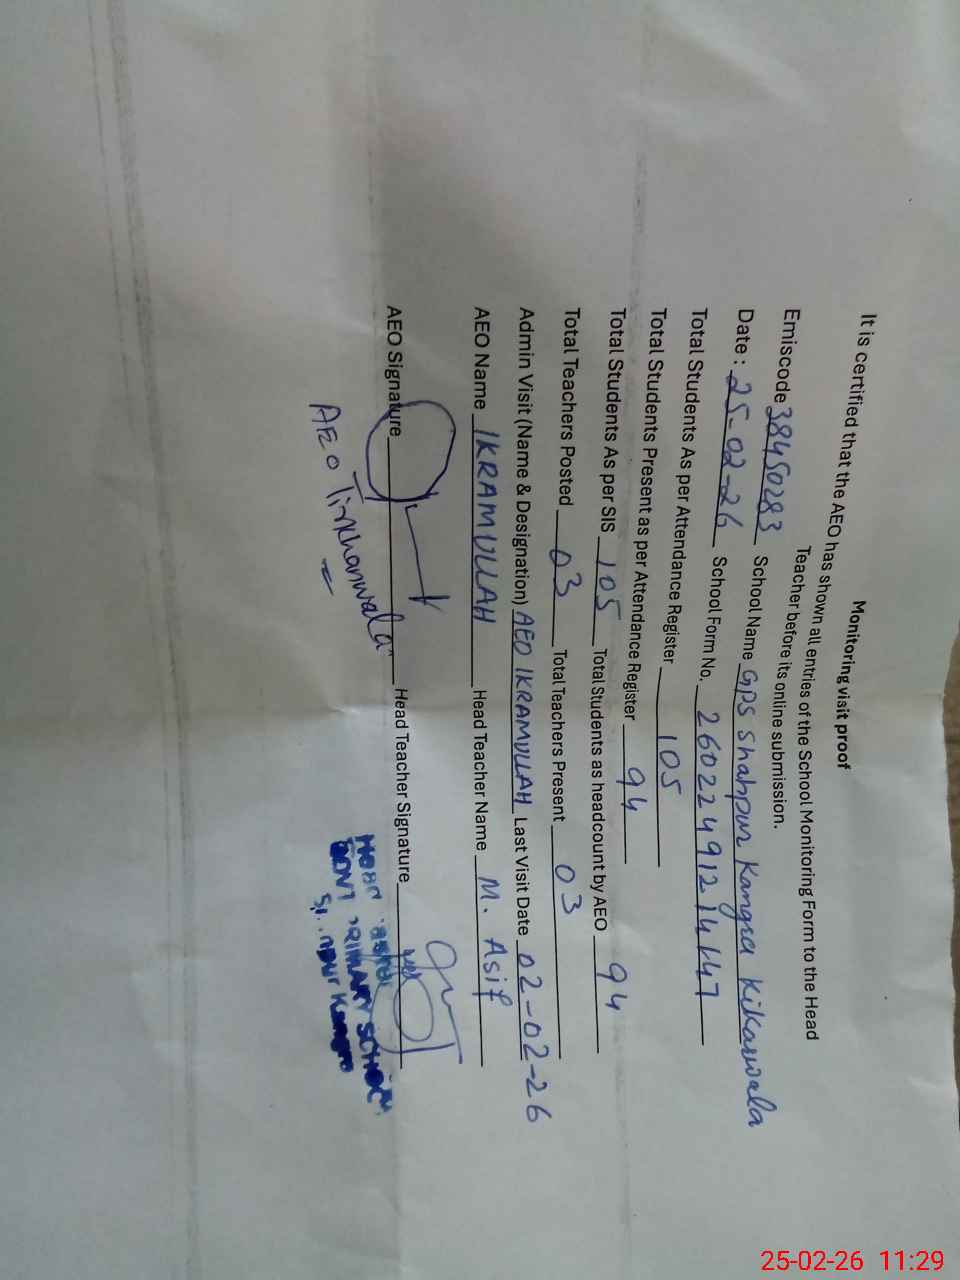 Monitoring visit proof
It is certified that the AEO has shown all entries of the School Monitoring Form to the Head
Teacher before its online submission.
Emiscode 38450283 School Name GPS Shahpur Kangra Kikarwala
Date : 25-02-26 School Form No. 26022491214147
Total Students As per Attendance Register 105
Total Students Present as per Attendance Register 94
Total Students As per SIS 105 Total Students as headcount by AEO 94
Total Teachers Posted 03 Total Teachers Present 03
Admin Visit (Name & Designation) AEO IKRAMULLAH Last Visit Date 02-02-26
AEO Name IKRAMULLAH Head Teacher Name M. Asif
AEO Signature Head Teacher Signature
AEO
Head
GOVT PRIMARY SCHOOL
Kangra
25-02-26 11:29